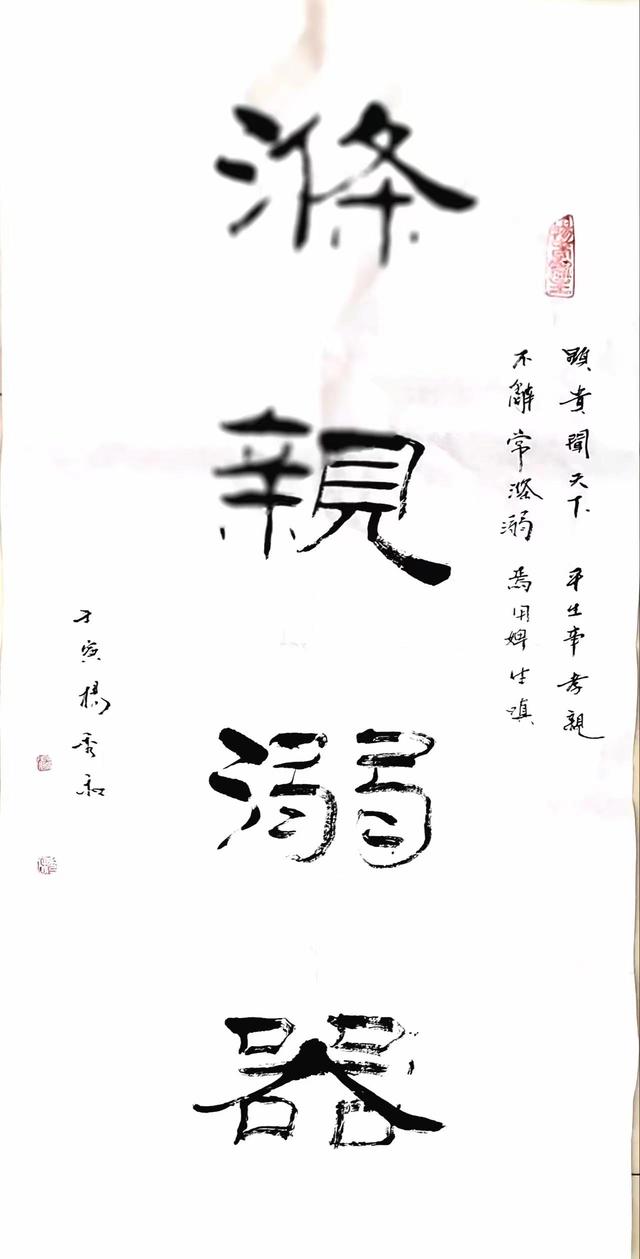 滌親溺器
顯貴聞天下 平生事孝親
不辭常滌溺 焉用婢生嗔
楊秀和